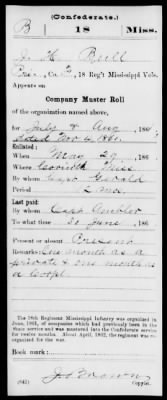 (Confederate.)
B 18 Miss.
J. H. Bull
Co. 18 Reg't Mississippi Vols.
Appears on
Company Muster Roll
of the organization named above,
for July & Aug, 186
dated Nov 4, 1861.
Enlisted:
When May 29, 186
Where Corinth Miss
By whom Capt Gerald
Period 12 mos.
Last paid:
By whom Capt Ambler
To what time 30 June, 186
Present or absent Present
Remarks: One month as a
private & one month as
a Corpl
The 18th Regiment Mississippi Infantry was organized in
June, 1861, of companies which had previously been in the
State service and was mustered into the Confederate service
for twelve months. About April, 1862, the regiment was
Book mark:
(642) J. O. Brown
Copyist.